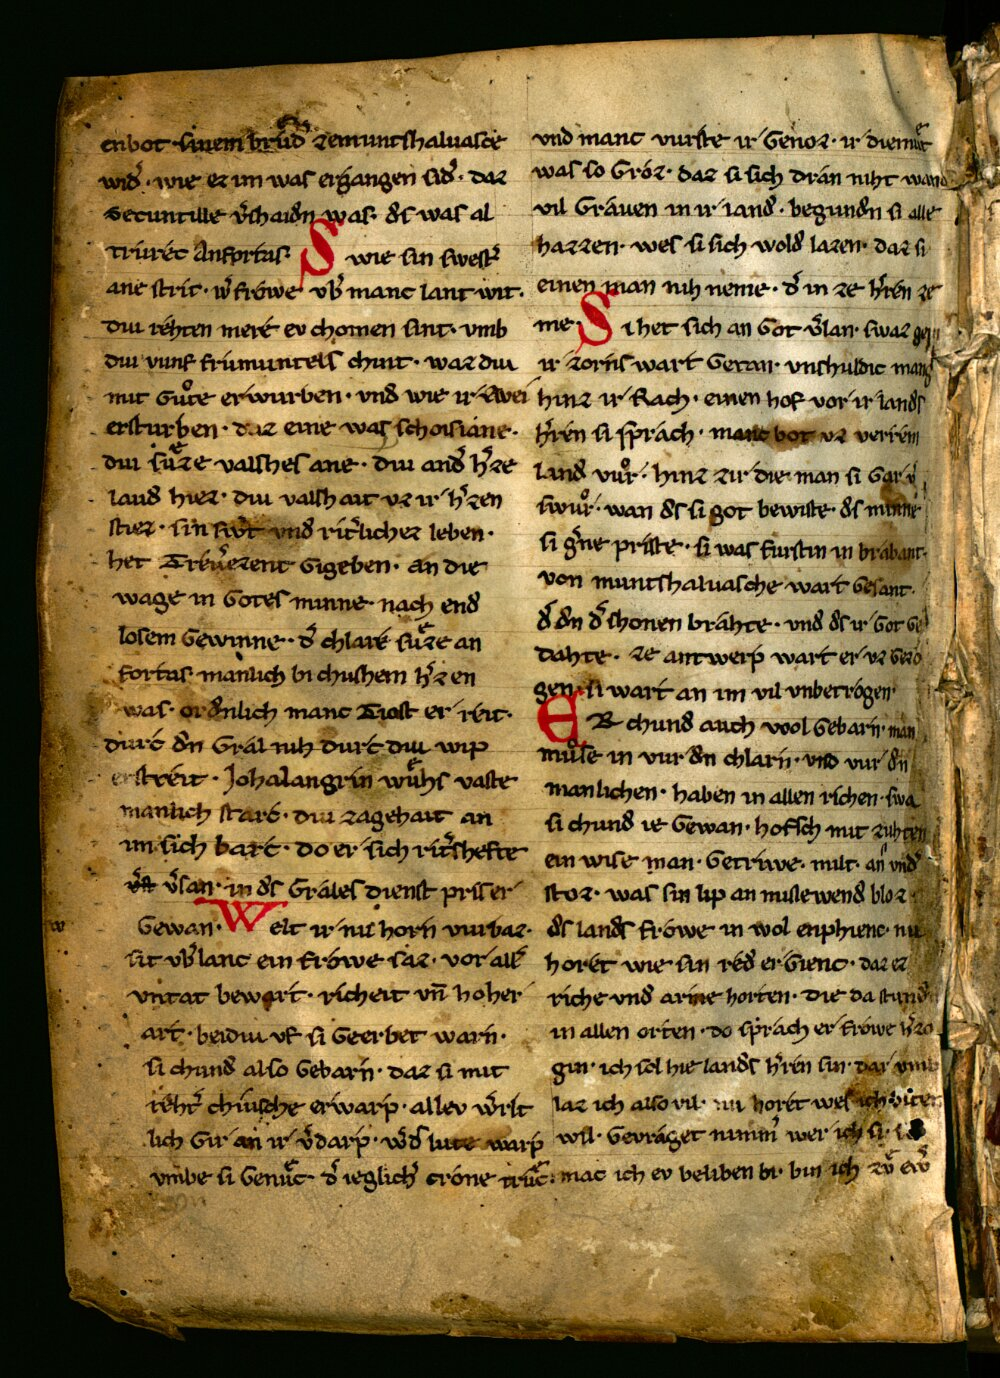 enbot sinem brůd̄ zemuntshaluasce
wid̾. wie ez im was ergangen sid̾. daz
Secuntille v̾shaidn was. ds was al
trurec Anfortas. S wie sin swest̾
ane strit. w̾ frowe vb̾ manc lant wit.
diu rehten mere ev chomen sint. vmb
diu vunf frimuntels chint. waz diu
mit Guͦte erwurben. vnd wie ir zwei
ersturben. daz eine was schoisiane.
diu suͤze valshes ane. diu and̾ h̾ze
laud hiez. diu valshait vz ir h̾zen
stiez. sin sw̾t vnd rit̾licher leben.
het Trev̾ezent Gigeben. an die
wage in Gotes minne. nach end
losem Gewinne. d̾ chlare suͤze an
fortas manlich bi chushem h̾zen
was. ordnlich manc Tiost er reit.
durc dn Gral nih durc diu wip
erstreit. Johalangrin wuͤhs vaste
manlich starc. diu zagehait an
im sich barc. do er sich rit̾shefte
v̾san. in ds Grales dienst pris er
Gewan. W elt ir nu horn vurbaz.
sit vb̾lanc ein frowe saz. vor all̾
vntat bewart. richeit vn̄ hoher
art. beidiu vf si Geerbet warn.
si chund also Gebarn. daz si mit
reht̾ chiusche erwarp. allev w̾rlt
lich Gir an ir v̾darp. w̾d lute warp
vmbe si Genuͤc. d̾ ieglich̾ crone truͤc.
vnd manc vurste ir Genoz. ir diemuͤt
was so Groz. daz si sich dran niht wand
vil Grauen in ir land. begundn si alle
hazzen. wes si sich wold lazen. daz si
einen man nih neme. d̾ in ze h̾ren ze
me. S i het sich an Got v̾lan. swaz
ir zorns wart Getan. vnschuldic manc
hinz ir Rach. einen hof vor ir lands
h̾ren si sprach. manc bot vz verrem
land vuͦr. hinz zir die man si Gar v̾
swuͦr. wan ds si got bewiste. ds minne
si g̾ne priste. si was furstin in brabant.
von muntshaluasche wart Gesant.
d̾ dn d̾ shonen brahte. vnd ds ir Got Ge
dahte. ze antwerp wart er vz Gezo
gen. si wart an im vil vnbetrogen.
E R chund auch wol Gebarn. man
muͤse in vur dn chlarn. vnd vur dn
manlichen. haben in allen richen. swa
si chund ie Gewan. hofsch mit zuhten
ein wise man. Getriwe. milt. an vnd̾
stoz. was sin lip an missewend bloz.
ds lands frowe in wol enphienc. nu
horet wie sin red ergienc. daz ez
riche vnd arme horten. die da stundn
in allen orten. do sprach er frowe h̾zo
gin. ich sol hie lands h̾ren sin. dar vmb
laz ich also vil. nu horet wes ich biten
wil. Gevraget nimm̾ wer ich si.
mac ich ev beliben bi. bin ich